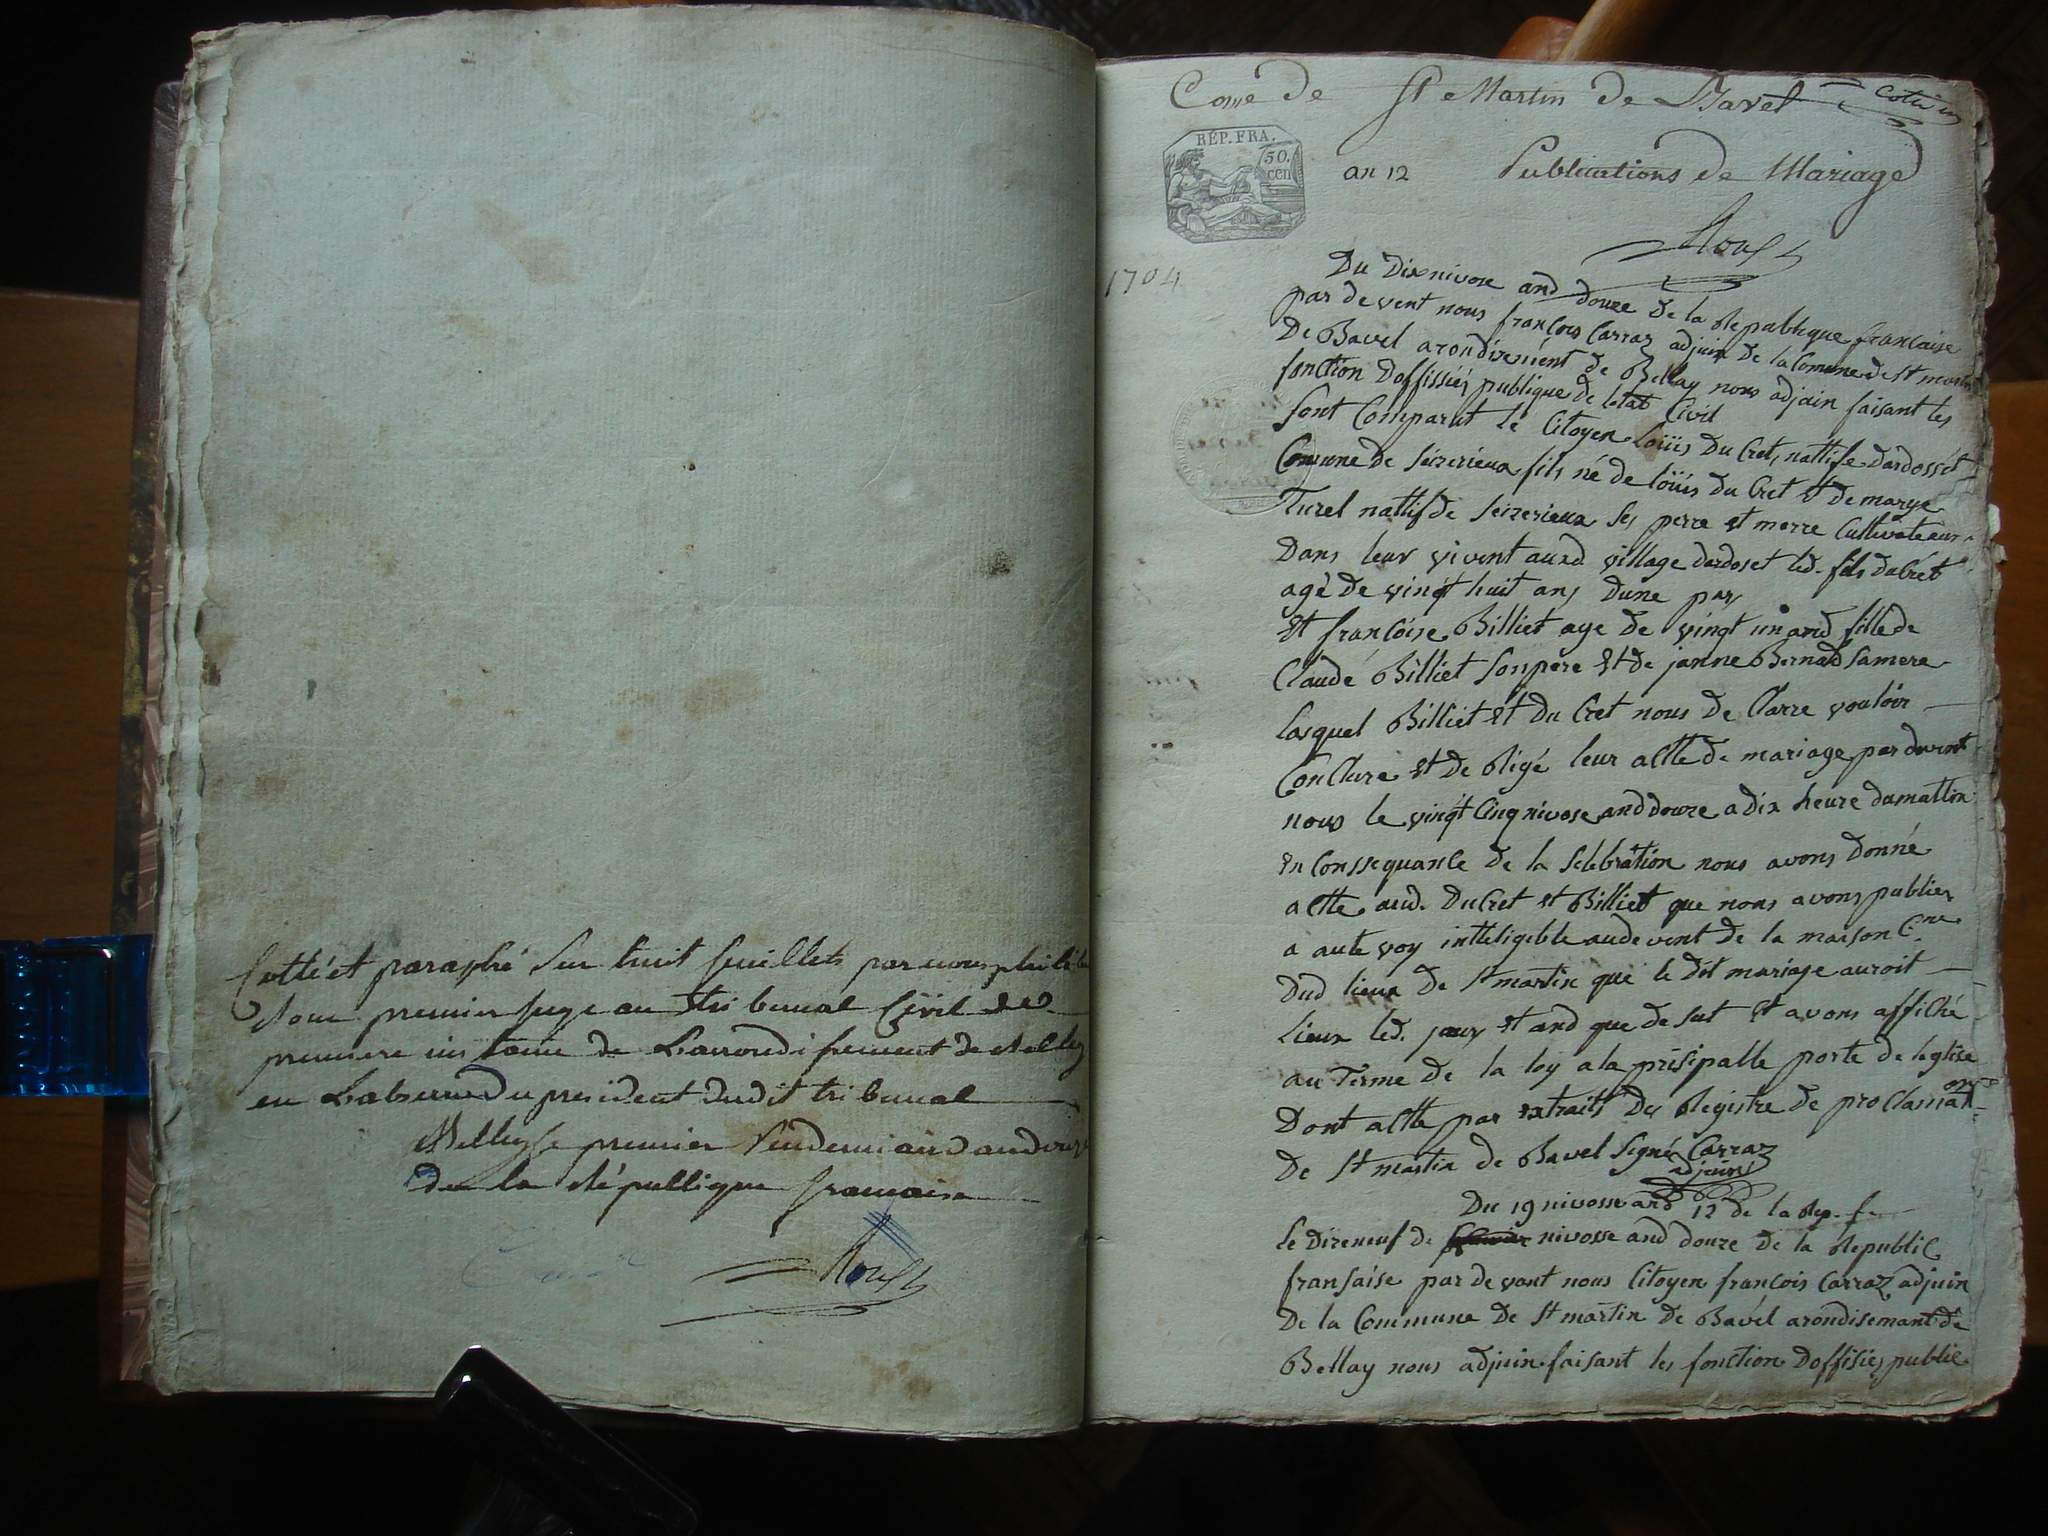 Cotté et paraphé sur huit feuillets par nous
Roux premier juge au tribunal Civil de
premiere instance de Larrondissement de Belley
en Labsence du president dudit tribunal
Belley le premier Vendemiaire an douze
de la république francaise
Roux
Come de St Martin de Bavel
RÉP. FRA.
50.
cen
an 12 Publications de Mariage
Roux
1704
Du Dixnivose and douze de la Republique francaise
par devent nous françois Carraz adjuin de la Comune de St martin
De Bavel arondisemént de Bellay nous adjuin faisant les
fonction Doffissiér publique de letat Civil
sont Comparut le Citoyen Loüis Du Cret, nattife dardossét
Comune de seizerieux fils né de loüis du Cret et de marye
Turel nattif de seizerieux ses perre et merre Cultivateur
Dans leur vivent aud village dardoset led. fils duCrét
agé de vingt huit ans dune par
et françoise Billiet age de vingt un and fille de
Claude Billiet son pere et de janne Bernad samere
lasquel Billiet et du Cret nous de Clarre vouloir
Conclure et de Rigé leur actte de mariage par devent
nous le vingt Cinq nivose and douze a dix heure du mattin
en Conssequance de la selébration nous avons donné
actte aud. DuCret et Billiet que nous avons publier
a aute voy intteligible audevent de la maison C.ne
Dud lieux de St martin que le dit mariage auroit
lieux led. jour et and que de sut et avons affiché
au Terme de la loy a la prisipalle porte de leglise
Dont actte par extraits du Registre de proclamat.on
De St martin de Bavel signé Carraz
adjuin
Du 19 nivosse and 12 de la Rep. f.
le dizeneuf de nivosse and douze de la Republic
fransaise par de vant nous Citoyen francois Carraz adjuin
De la Commune de St martin de Bavél arondisemant de
Bellay nous adjuin faisant les fonction Doffisies public